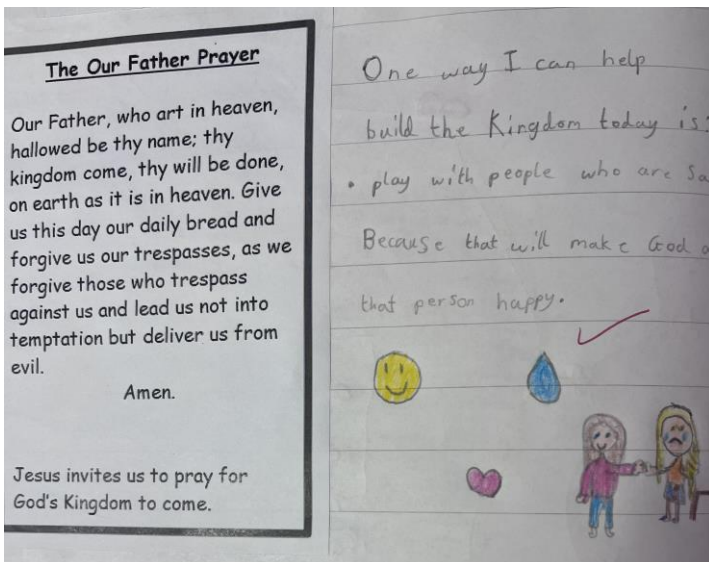 The Our Father Prayer
Our Father, who art in heaven,
hallowed be thy name; thy
kingdom come, thy will be done,
on earth as it is in heaven. Give
us this day our daily bread and
forgive us our trespasses, as we
forgive those who trespass
against us and lead us not into
temptation but deliver us from
evil.
Amen.
Jesus invites us to pray for
God's Kingdom to come.
One way I can help
build the Kingdom today is:
• play with people who are
Because that will make God
that person happy.